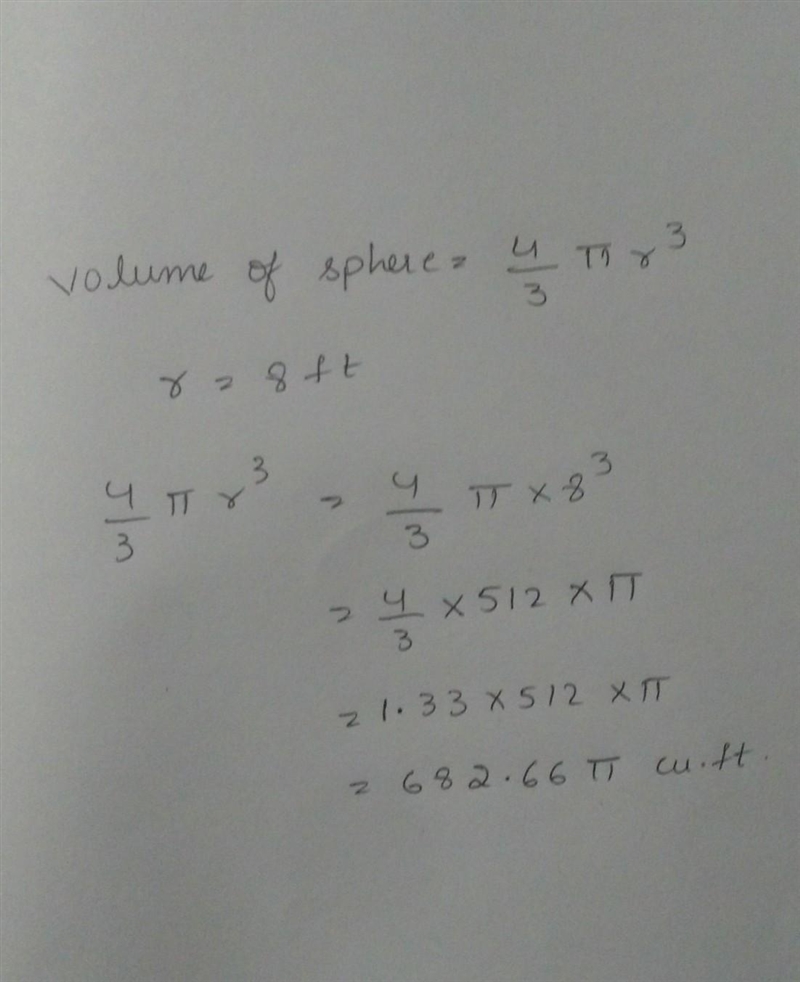 volume of sphere = 4/3 π r³
r = 8 ft
4/3 π r³ = 4/3 π × 8³
= 4/3 × 512 × π
= 1.33 × 512 × π
= 682.66 π cu.ft.